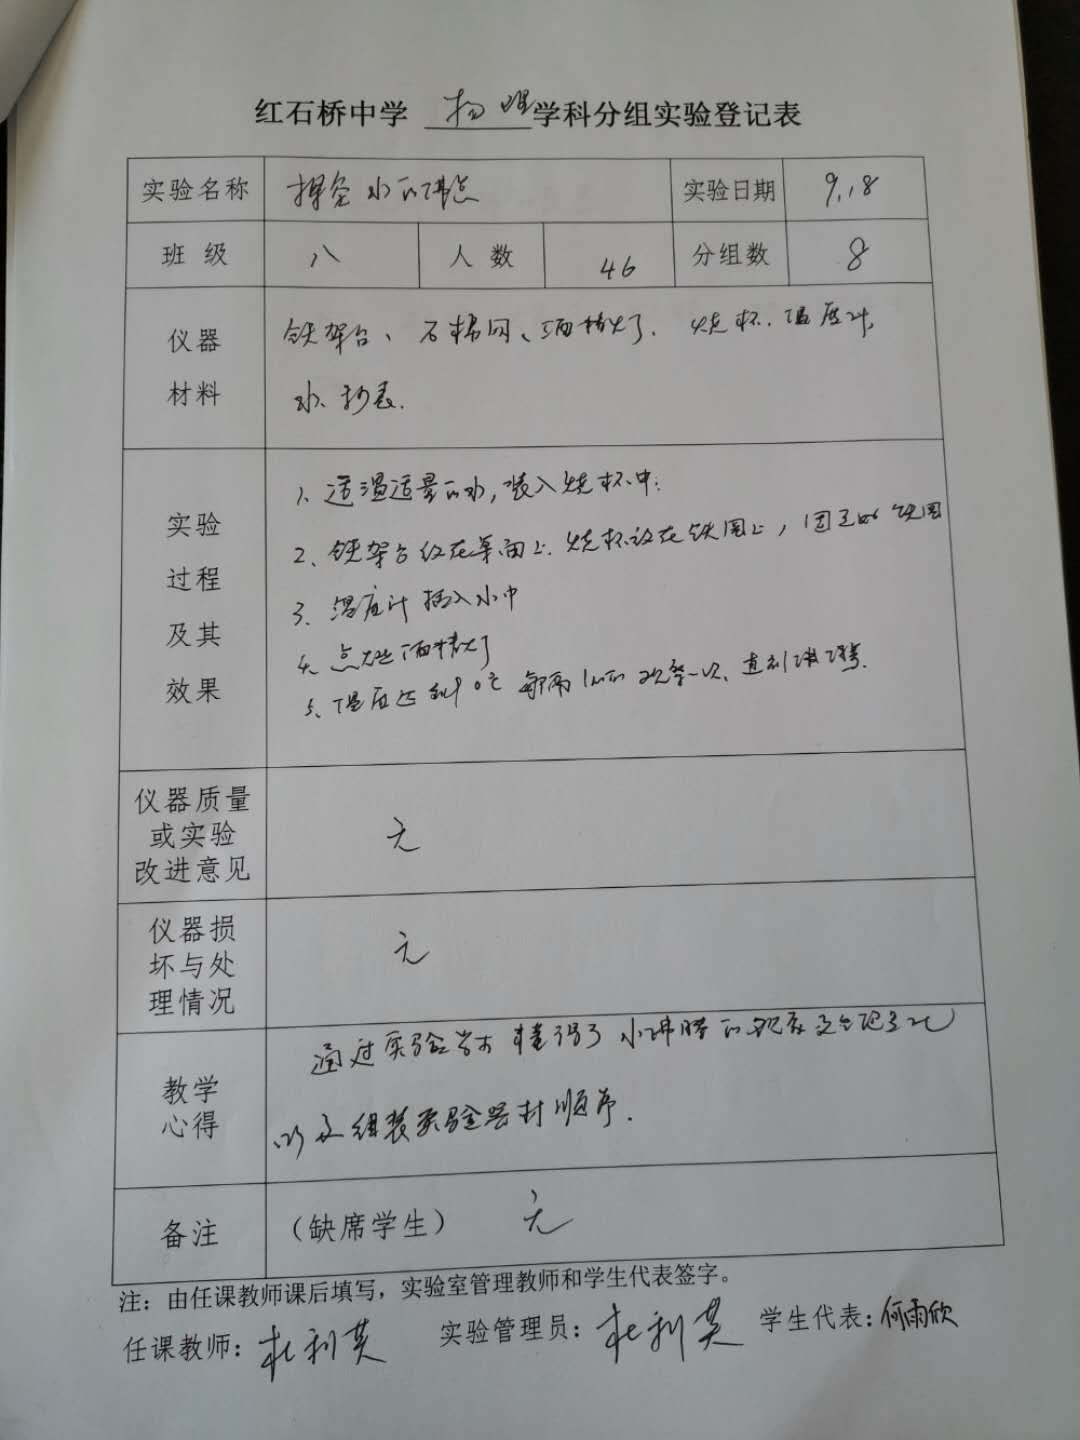 红石桥中学 物理 学科分组实验登记表
实验名称 探究水的沸点 实验日期 9.18
班级 八 人数 46 分组数 8
仪器材料 铁架台、石棉网、酒精灯、烧杯、温度计、
水、秒表.
实验过程及其效果
1、适温适量的水,装入烧杯中;
2、铁架台放在桌面上、烧杯放在铁圈上,固定好铁圈
3、温度计插入水中
4、点燃酒精灯
5、温度达到90℃ 每隔1min观察一次、直到沸腾.
仪器质量或实验改进意见 无
仪器损坏与处理情况 无
教学心得 通过实验 水沸腾的
以及组装实验器材顺序.
备注 (缺席学生) 无
注:由任课教师课后填写,实验室管理教师和学生代表签字。
任课教师:杜利英 实验管理员:杜利英 学生代表:何雨欣